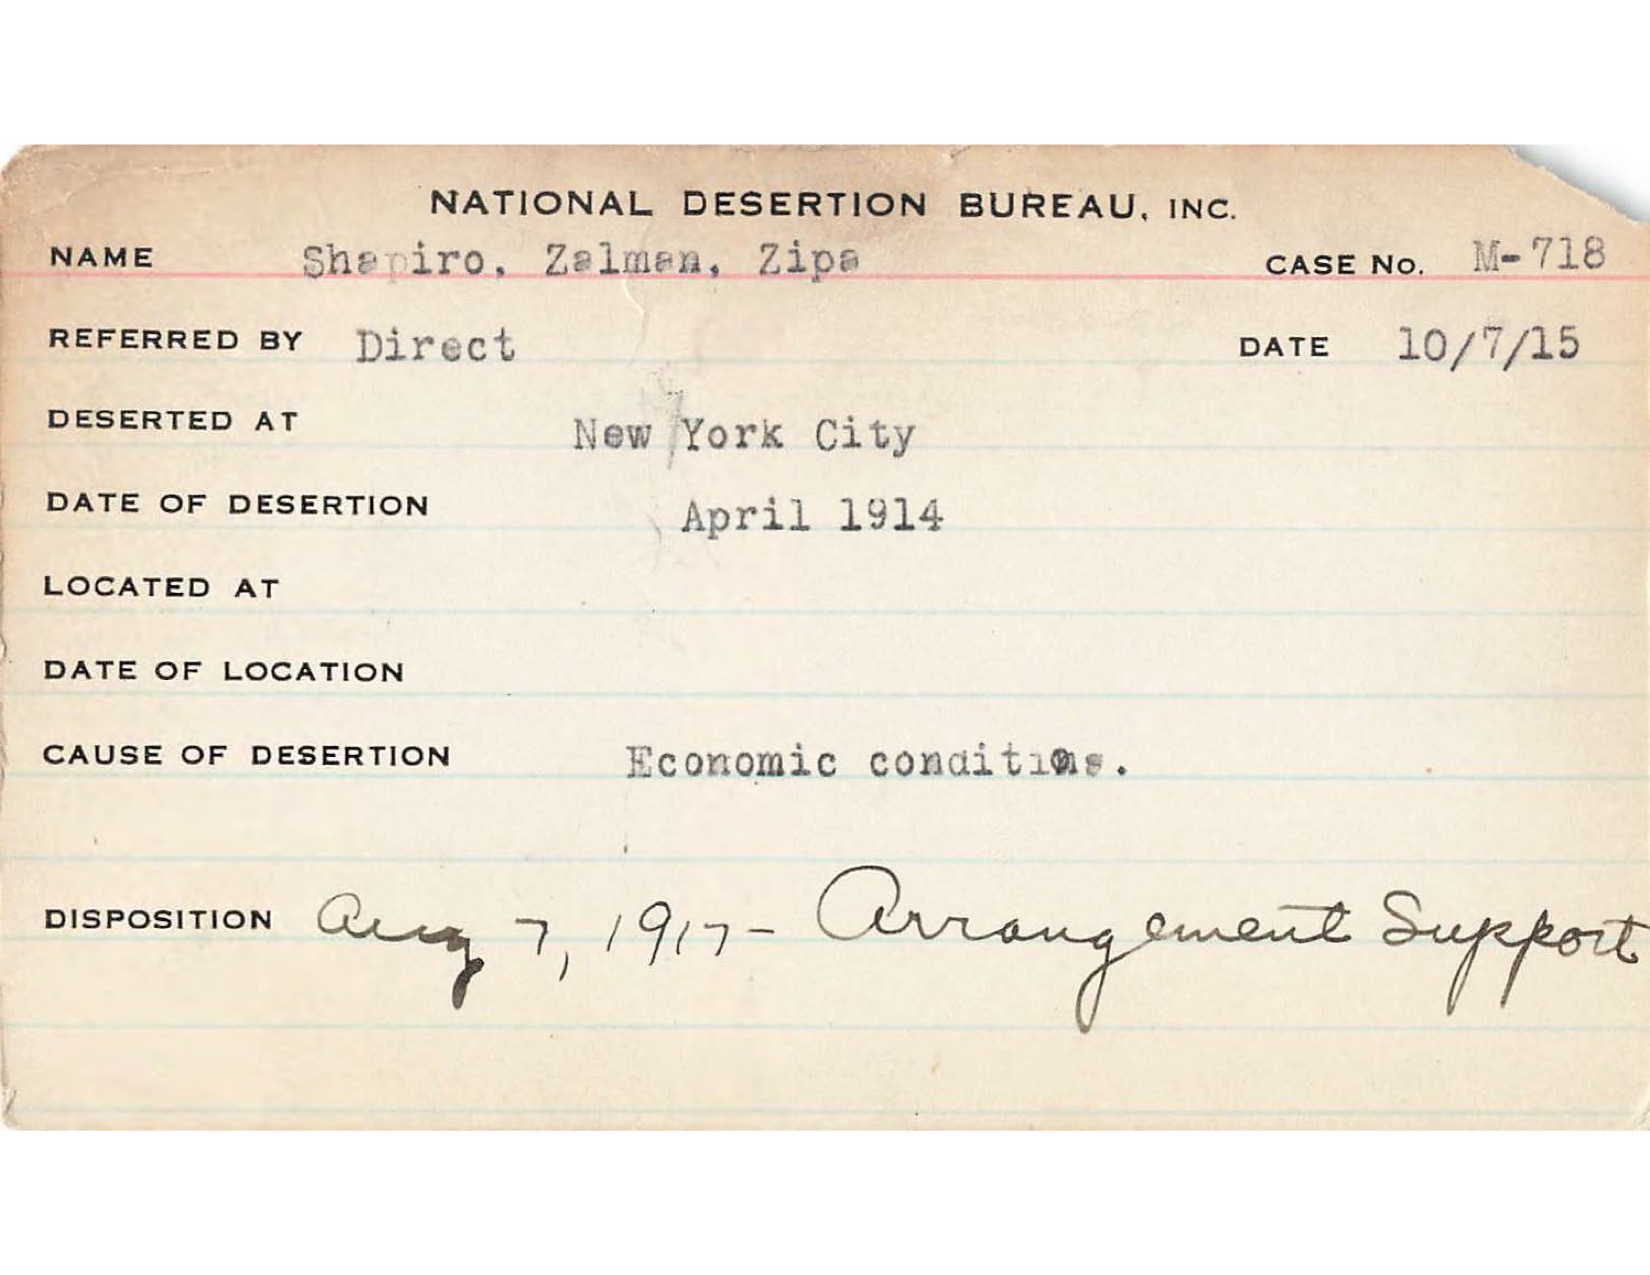 NATIONAL DESERTION BUREAU, INC.
NAME Shapiro, Zalman, Zipa CASE No. M-718
REFERRED BY Direct DATE 10/7/15
DESERTED AT New York City
DATE OF DESERTION April 1914
LOCATED AT
DATE OF LOCATION
CAUSE OF DESERTION Economic conditions.
DISPOSITION Aug 7, 1917 - Arrangement Support